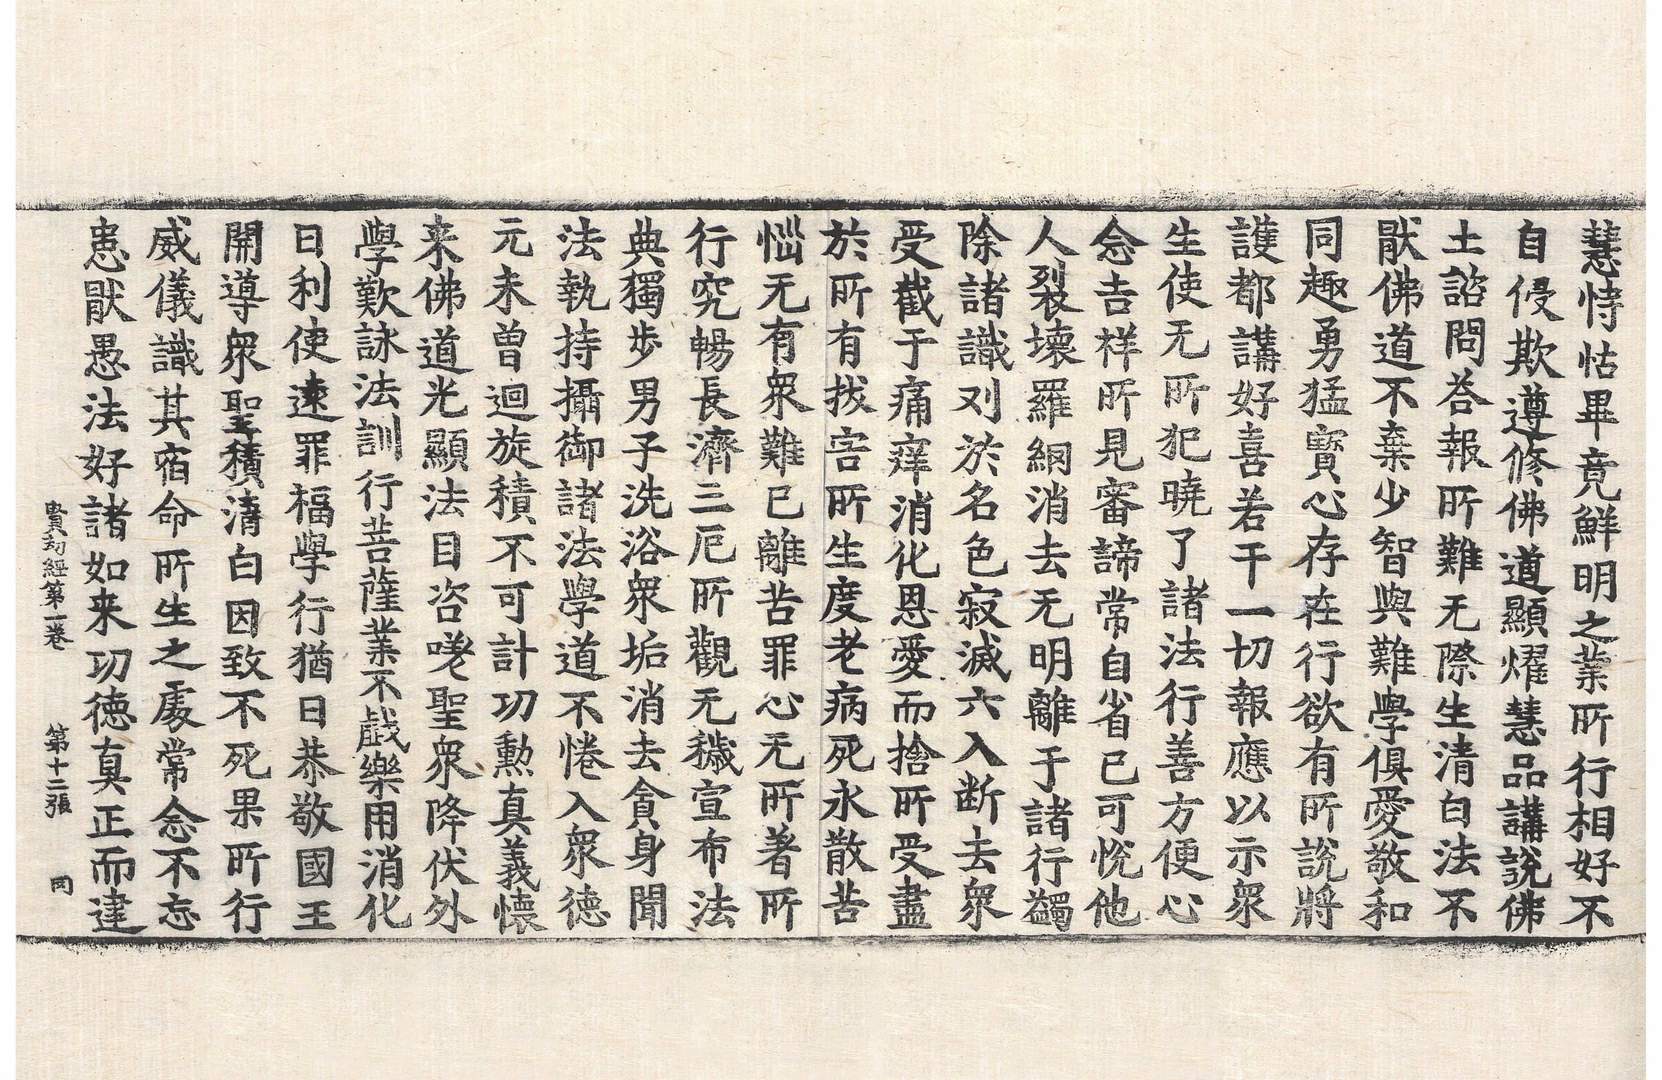 慧恃怙畢竟鮮明之業所行相好不
自侵欺遵修佛道顯燿慧品講說佛
土諮問荅報所難无際生清白法不
猒佛道不棄少智與難學俱愛敬和
同趣勇猛寶心存在行欲有所說將
護都講好喜若干一切報應以示衆
生使无所犯曉了諸法行善方便心
念吉祥所見審諦常自省已可悅他
人裂壞羅網消去无明離于諸行蠲
除諸識刈於名色寂滅六入斷去衆
受截于痛痒消化恩愛而捨所受盡
於所有拔害所生度老病死永散苦
惱无有衆難已離苦罪心无所著所
行究暢長濟三厄所觀无穢宣布法
典獨步男子洗浴衆垢消去貪身聞
法執持攝御諸法學道不惓入衆德
元未曾迴旋積不可計功勳真義懷
来佛道光顯法目咨嗟聖衆降伏外
學歎詠法訓行菩薩業不戲樂用消化
日利使速罪福學行猶日恭敬國王
開導衆聖積清白因致不死果所行
威儀識其宿命所生之處常念不忘
恚猒愚法好諸如来功德真正而建
賢劫經第一卷 第十二張 岡